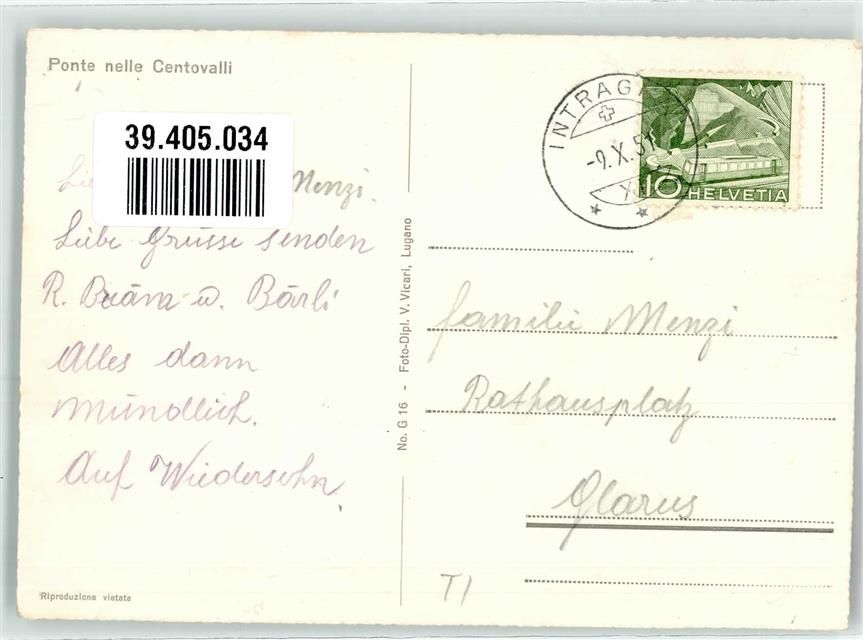 Ponte nelle Centovalli
39.405.034
Menzi.
Liebe Grüsse senden
R. Bräm u. Bärli
Alles dann
mündlich.
Auf Wiedersehn
No. G 16 - Foto-Dipl. V. Vicari, Lugano
INTRAGNA
-9.X.51
10 HELVETIA
Familie Menzi
Rathausplatz
Glarus
T1
Riproduzione vietata